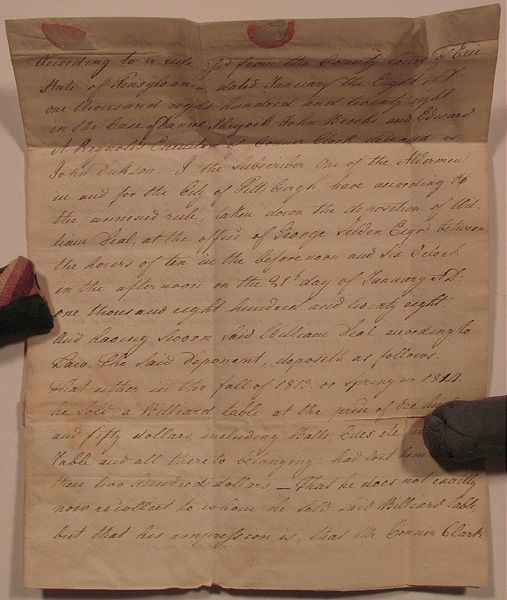 According to a rule issd from the County Court of Erie
State of Pensylvania, dated January the Eight A.D.
one thousand eight hundred and twenty eight
in the Case of Daniel John Brooks and Edward
A Reynolds Executors of Connor Clark deceased vs
John Dickson I the Subscriber One of the Aldermen
in and for the City of Pittsburgh, have according to
the annexed rule, taken down the deposition of Wil
liam Deal, at the office of George Selden Esqr between
the hours of ten in the beforenoon and Six O'clock
in the afternoon on the 21st day of January A.D.
one thousand eight hundred and twenty eight.
And having Sworn said William Deal according to
Law, The said Deponent, deposeth as follows.
That either in the fall of 1813 or spring in 1814
he sold a Billiard table at the price of One
and fifty dollars, including Balls, Cues
Table and all thereto belonging - had cost him
two hundred dollars — That he does not exactly
now recollect to whom he sold said Billiard table,
but that his impression is, that Mr Connor Clark